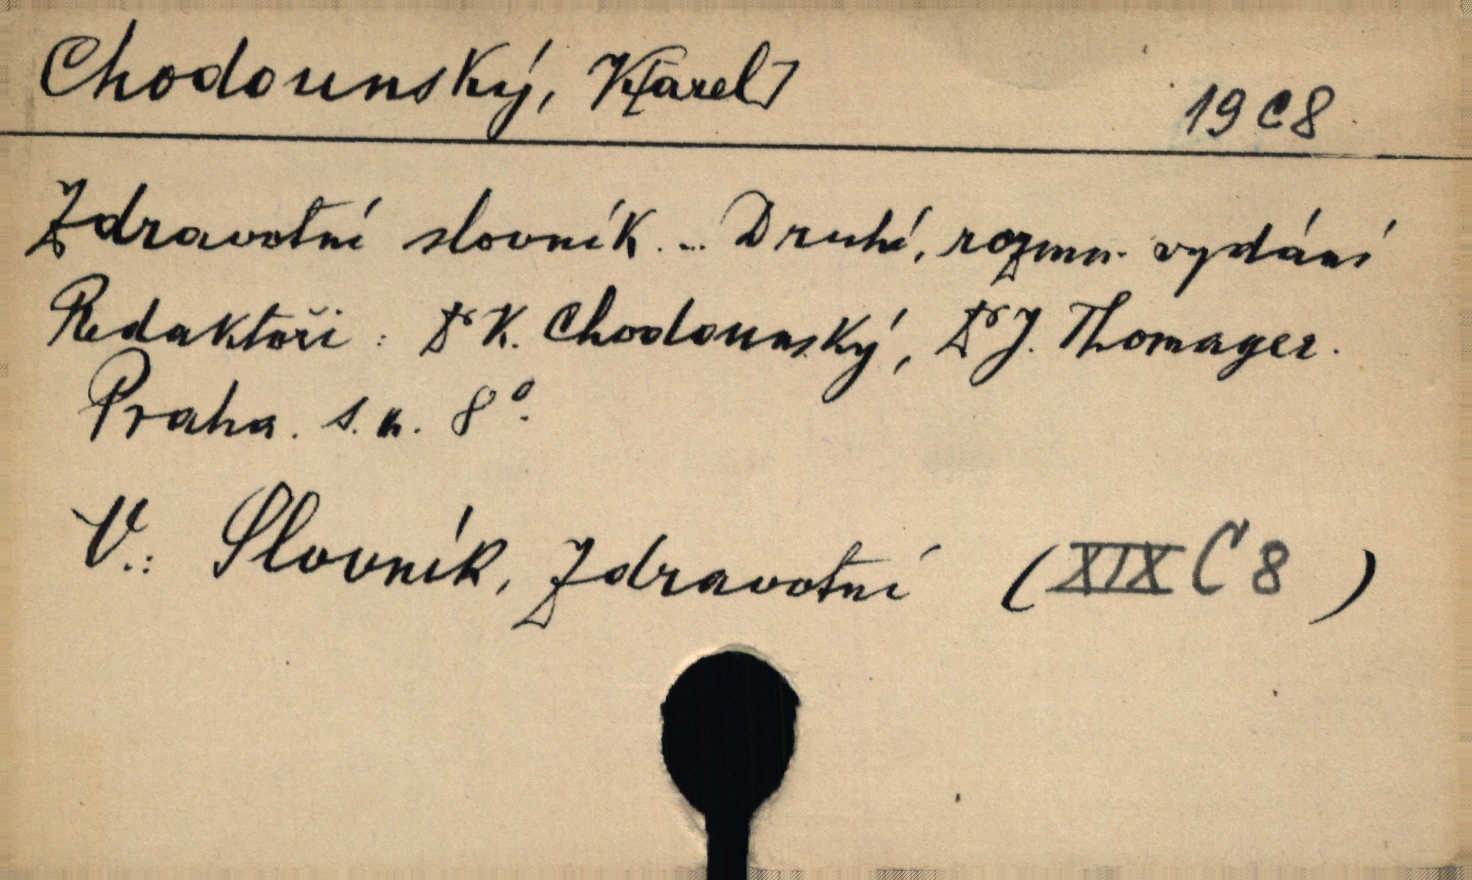 Chodounský, K[arel]
19 C 8
Zdravotní slovník ... Druhé, rozmn. vydání
Redaktoři: Dr K. Chodounský, Dr J. Thomayer.
Praha. s.a. 8°.
V.: Slovník, Zdravotní (XIX C 8)